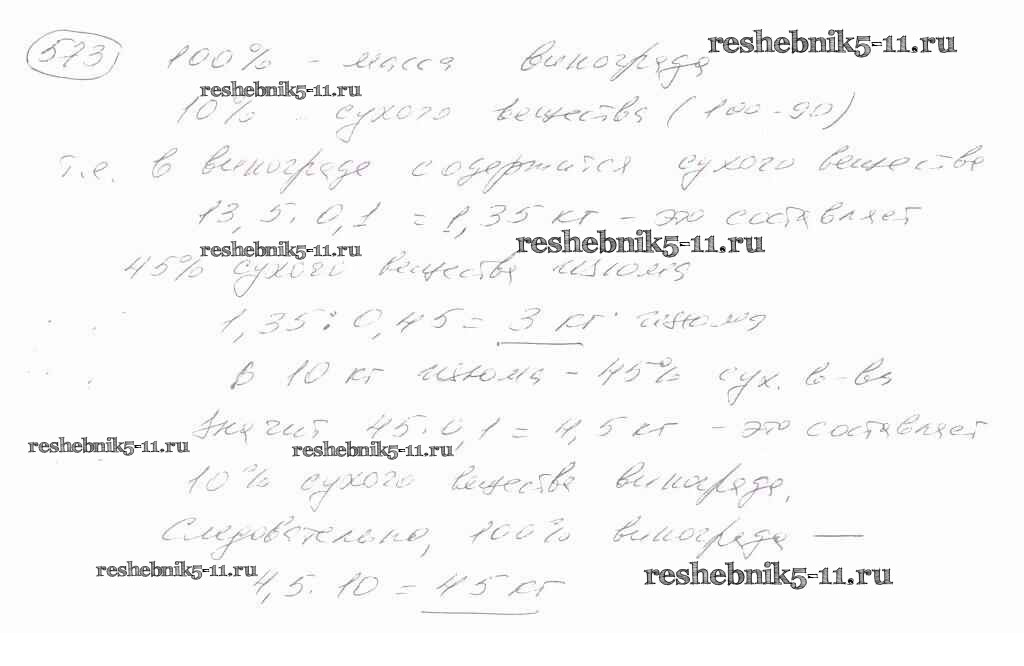 573 100% - масса винограда
reshebnik5-11.ru
reshebnik5-11.ru
10% - сухого вещества (100-90)
т.е. в винограде содержится сухого вещества
13,5·0,1 = 1,35 кг - это составляет
reshebnik5-11.ru reshebnik5-11.ru
45% сухого вещества изюма
1,35:0,45 = 3 кг изюма
В 10 кг изюма - 45% сух. в-ва
Значит 45·0,1 = 4,5 кг - это составляет
reshebnik5-11.ru reshebnik5-11.ru
10% сухого вещества винограда.
Следовательно, 100% винограда —
reshebnik5-11.ru reshebnik5-11.ru
4,5·10 = 45 кг